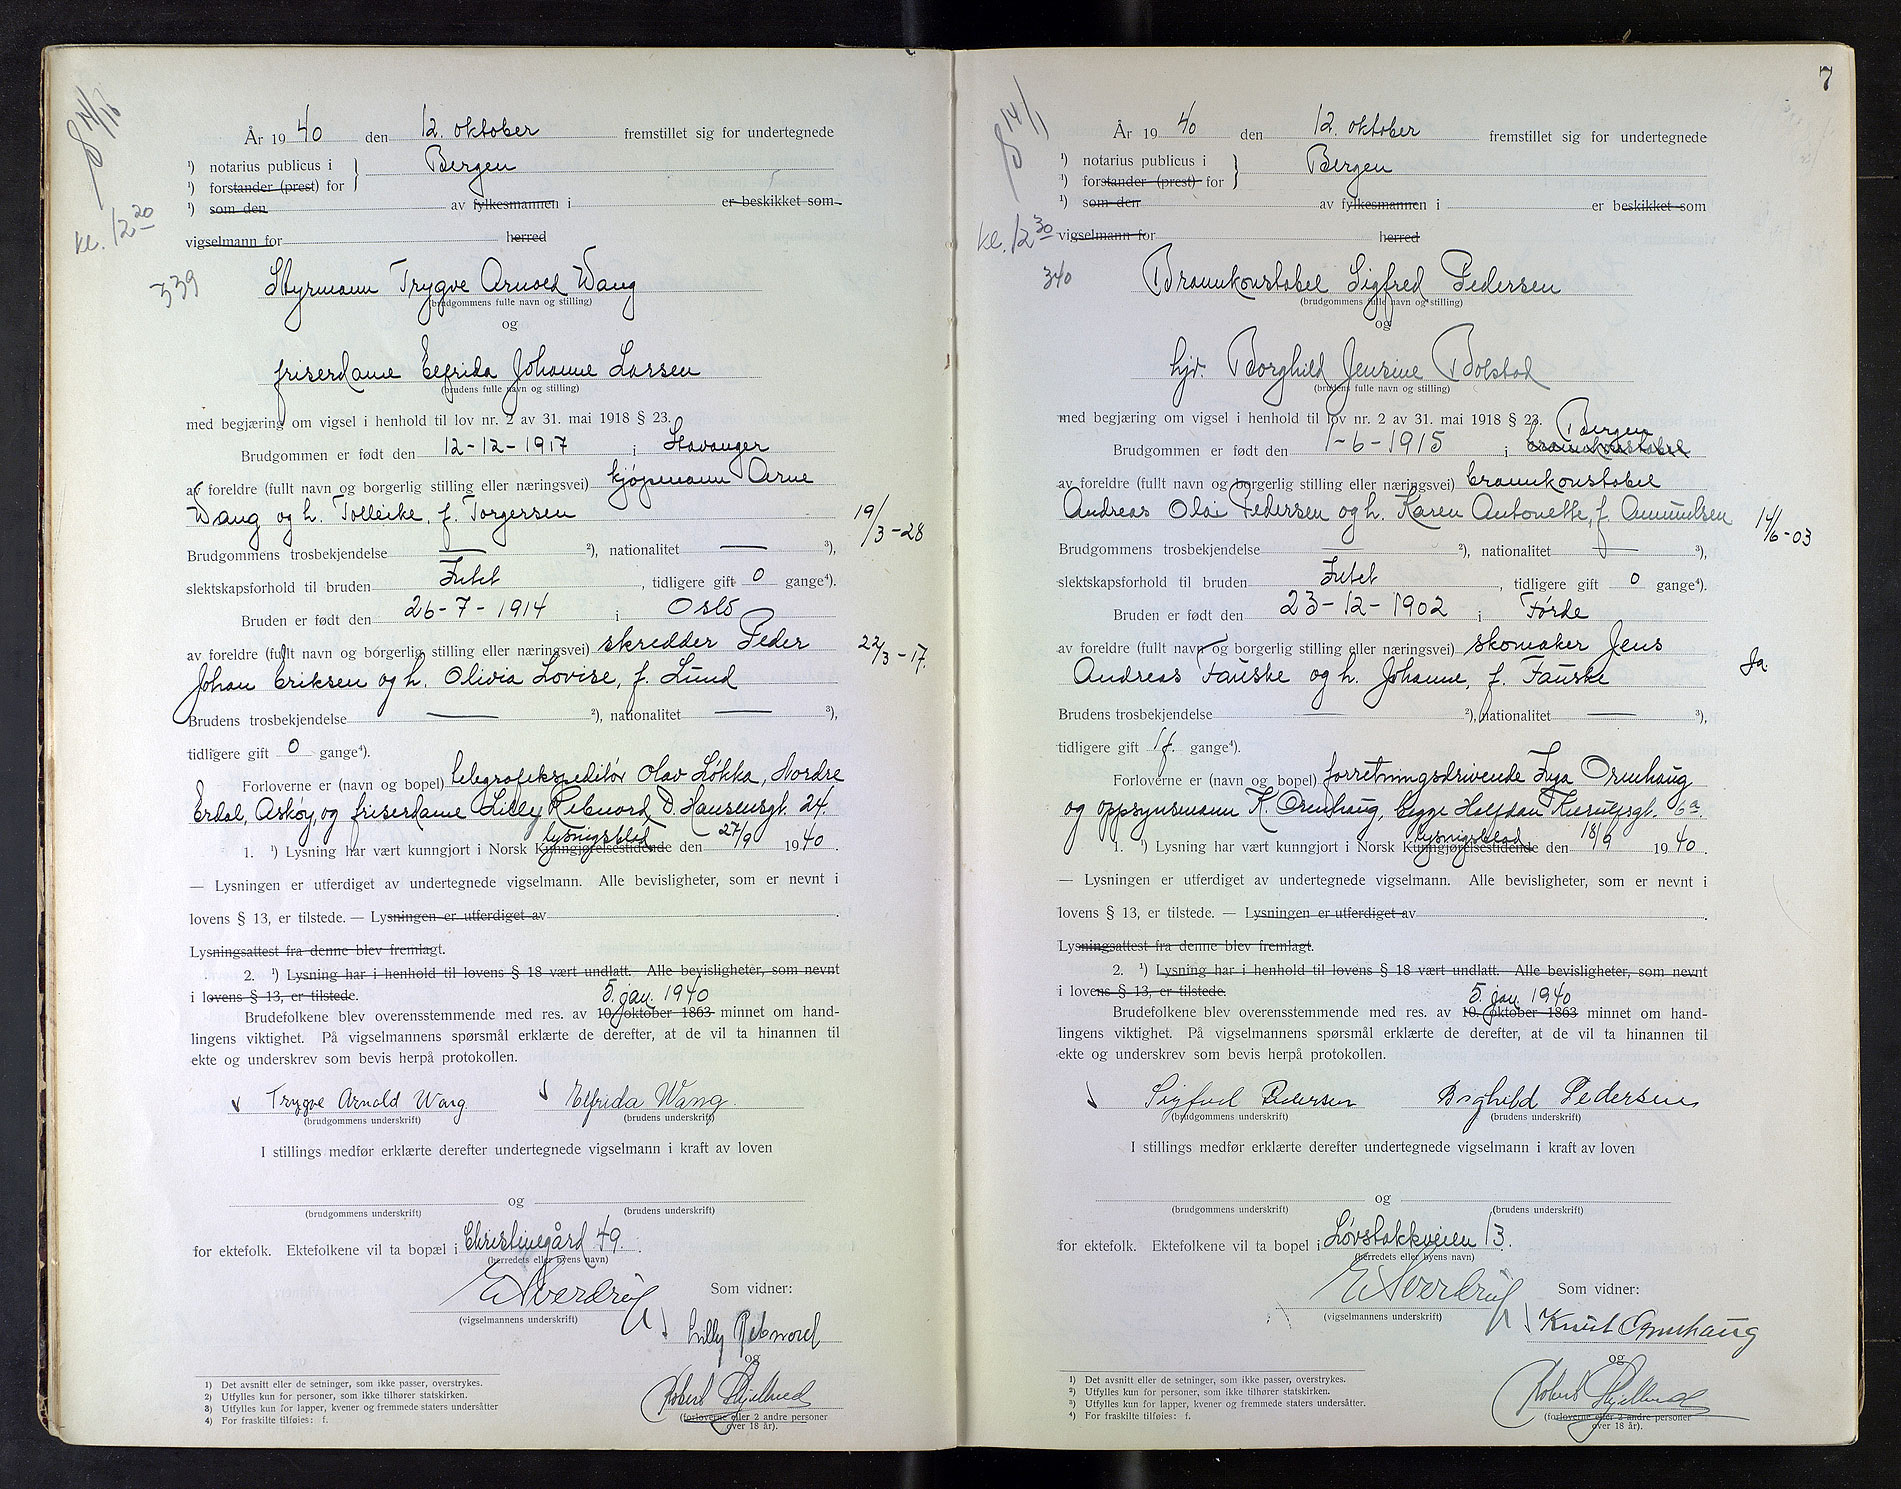 14/10
År 1940 den 12. oktober fremstillet sig for undertegnede
¹) notarius publicus i Bergen
¹) forstander (prest) for
¹) som den av fylkesmannen i er beskikket som
kl. 12 20
vigselmann for herred
339
Styrmann Trygve Arnold Wang
(brudgommens fulle navn og stilling)
og
friserdame Elfrida Johanne Larsen
(brudens fulle navn og stilling)
med begjæring om vigsel i henhold til lov nr. 2 av 31. mai 1918 § 23.
Brudgommen er født den 12-12-1917 i Stavanger
av foreldre (fullt navn og borgerlig stilling eller næringsvei) kjøpmann Arne
Wang og h. Tolleike, f. Torgersen 19/3-28
Brudgommens trosbekjendelse — ²), nationalitet — ³),
slektskapsforhold til bruden Intet, tidligere gift 0 gange⁴).
Bruden er født den 26-7-1914 i Oslo
av foreldre (fullt navn og borgerlig stilling eller næringsvei) skredder Peder 22/3-17.
Johan Eriksen og h. Olivia Lovise, f. Lund
Brudens trosbekjendelse — ²), nationalitet — ³),
tidligere gift 0 gange⁴).
Forloverne er (navn og bopel) telegrafekspeditør Olav Løkka, Nordre
Erdal, Askøy, og friserdame Lilly Rebnord, D. Hansensgt. 24.
lysingsblad
1. ¹) Lysning har vært kunngjort i Norsk Kunngjørelsestidende den 27/9 1940.
— Lysningen er utferdiget av undertegnede vigselmann. Alle bevisligheter, som er nevnt i
lovens § 13, er tilstede. — Lysningen er utferdiget av
Lysningsattest fra denne blev fremlagt.
2. ¹) Lysning har i henhold til lovens § 18 vært undlatt. Alle bevisligheter, som nevnt
i lovens § 13, er tilstede. 5. jan. 1940
Brudefolkene blev overensstemmende med res. av 10. oktober 1863 minnet om hand-
lingens viktighet. På vigselmannens spørsmål erklærte de derefter, at de vil ta hinannen til
ekte og underskrev som bevis herpå protokollen.
Trygve Arnold Wang Elfrida Wang.
(brudgommens underskrift) (brudens underskrift)
I stillings medfør erklærte derefter undertegnede vigselmann i kraft av loven
og
(brudgommens underskrift) (brudens underskrift)
for ektefolk. Ektefolkene vil ta bopæl i Christinegård 49.
(herredets eller byens navn)
E. Sverdrup Som vidner:
(vigselmannens underskrift)
Lilly Rebnord
og
Robert
(forloverne eller 2 andre personer
over 18 år).
1) Det avsnitt eller de setninger, som ikke passer, overstrykes.
2) Utfylles kun for personer, som ikke tilhører statskirken.
3) Utfylles kun for lapper, kvener og fremmede staters undersåtter
4) For fraskilte tilføies: f.
7
14/11
År 1940 den 12. oktober fremstillet sig for undertegnede
¹) notarius publicus i Bergen
¹) forstander (prest) for
¹) som den av fylkesmannen i er beskikket som
kl. 12 30
vigselmann for herred
340
Brannkonstabel Sigfred Pedersen
(brudgommens fulle navn og stilling)
og
hjv. Borghild Jensine Bolstad
(brudens fulle navn og stilling)
med begjæring om vigsel i henhold til lov nr. 2 av 31. mai 1918 § 23.
Bergen
Brudgommen er født den 1-6-1915 i brannkonstabel
av foreldre (fullt navn og borgerlig stilling eller næringsvei) brannkonstabel
Andreas Olai Pedersen og h. Karen Antonette, f. Amundsen 14/6-03
Brudgommens trosbekjendelse — ²), nationalitet — ³),
slektskapsforhold til bruden Intet, tidligere gift 0 gange⁴).
Bruden er født den 23-12-1902 i Førde
av foreldre (fullt navn og borgerlig stilling eller næringsvei) skomaker Jens
Andreas Fauske og h. Johanne, f. Fauske Ja
Brudens trosbekjendelse — ²), nationalitet — ³),
tidligere gift 1 f. gange⁴).
Forloverne er (navn og bopel) forretningsdrivende Inga Ormhaug
og oppsynsmann K. Ormhaug, begge Halfdan Kierulfsgt. 6 a.
lysingsblad
1. ¹) Lysning har vært kunngjort i Norsk Kunngjørelsestidende den 18/9 1940.
— Lysningen er utferdiget av undertegnede vigselmann. Alle bevisligheter, som er nevnt i
lovens § 13, er tilstede. — Lysningen er utferdiget av
Lysningsattest fra denne blev fremlagt.
2. ¹) Lysning har i henhold til lovens § 18 vært undlatt. Alle bevisligheter, som nevnt
i lovens § 13, er tilstede. 5. jan. 1940
Brudefolkene blev overensstemmende med res. av 10. oktober 1863 minnet om hand-
lingens viktighet. På vigselmannens spørsmål erklærte de derefter, at de vil ta hinannen til
ekte og underskrev som bevis herpå protokollen.
Sigfred Pedersen Borghild Pedersen
(brudgommens underskrift) (brudens underskrift)
I stillings medfør erklærte derefter undertegnede vigselmann i kraft av loven
og
(brudgommens underskrift) (brudens underskrift)
for ektefolk. Ektefolkene vil ta bopel i Løvstakkveien 13.
(herredets eller byens navn)
E. Sverdrup Som vidner:
(vigselmannens underskrift)
Knut Ormhaug
og
Robert
(forloverne eller 2 andre personer
over 18 år).
¹) Det avsnitt eller de setninger, som ikke passer, overstrykes.
²) Utfylles kun for personer, som ikke tilhører statskirken.
³) Utfylles kun for lapper, kvener og fremmede staters undersåtter.
⁴) For fraskilte tilføies: f.